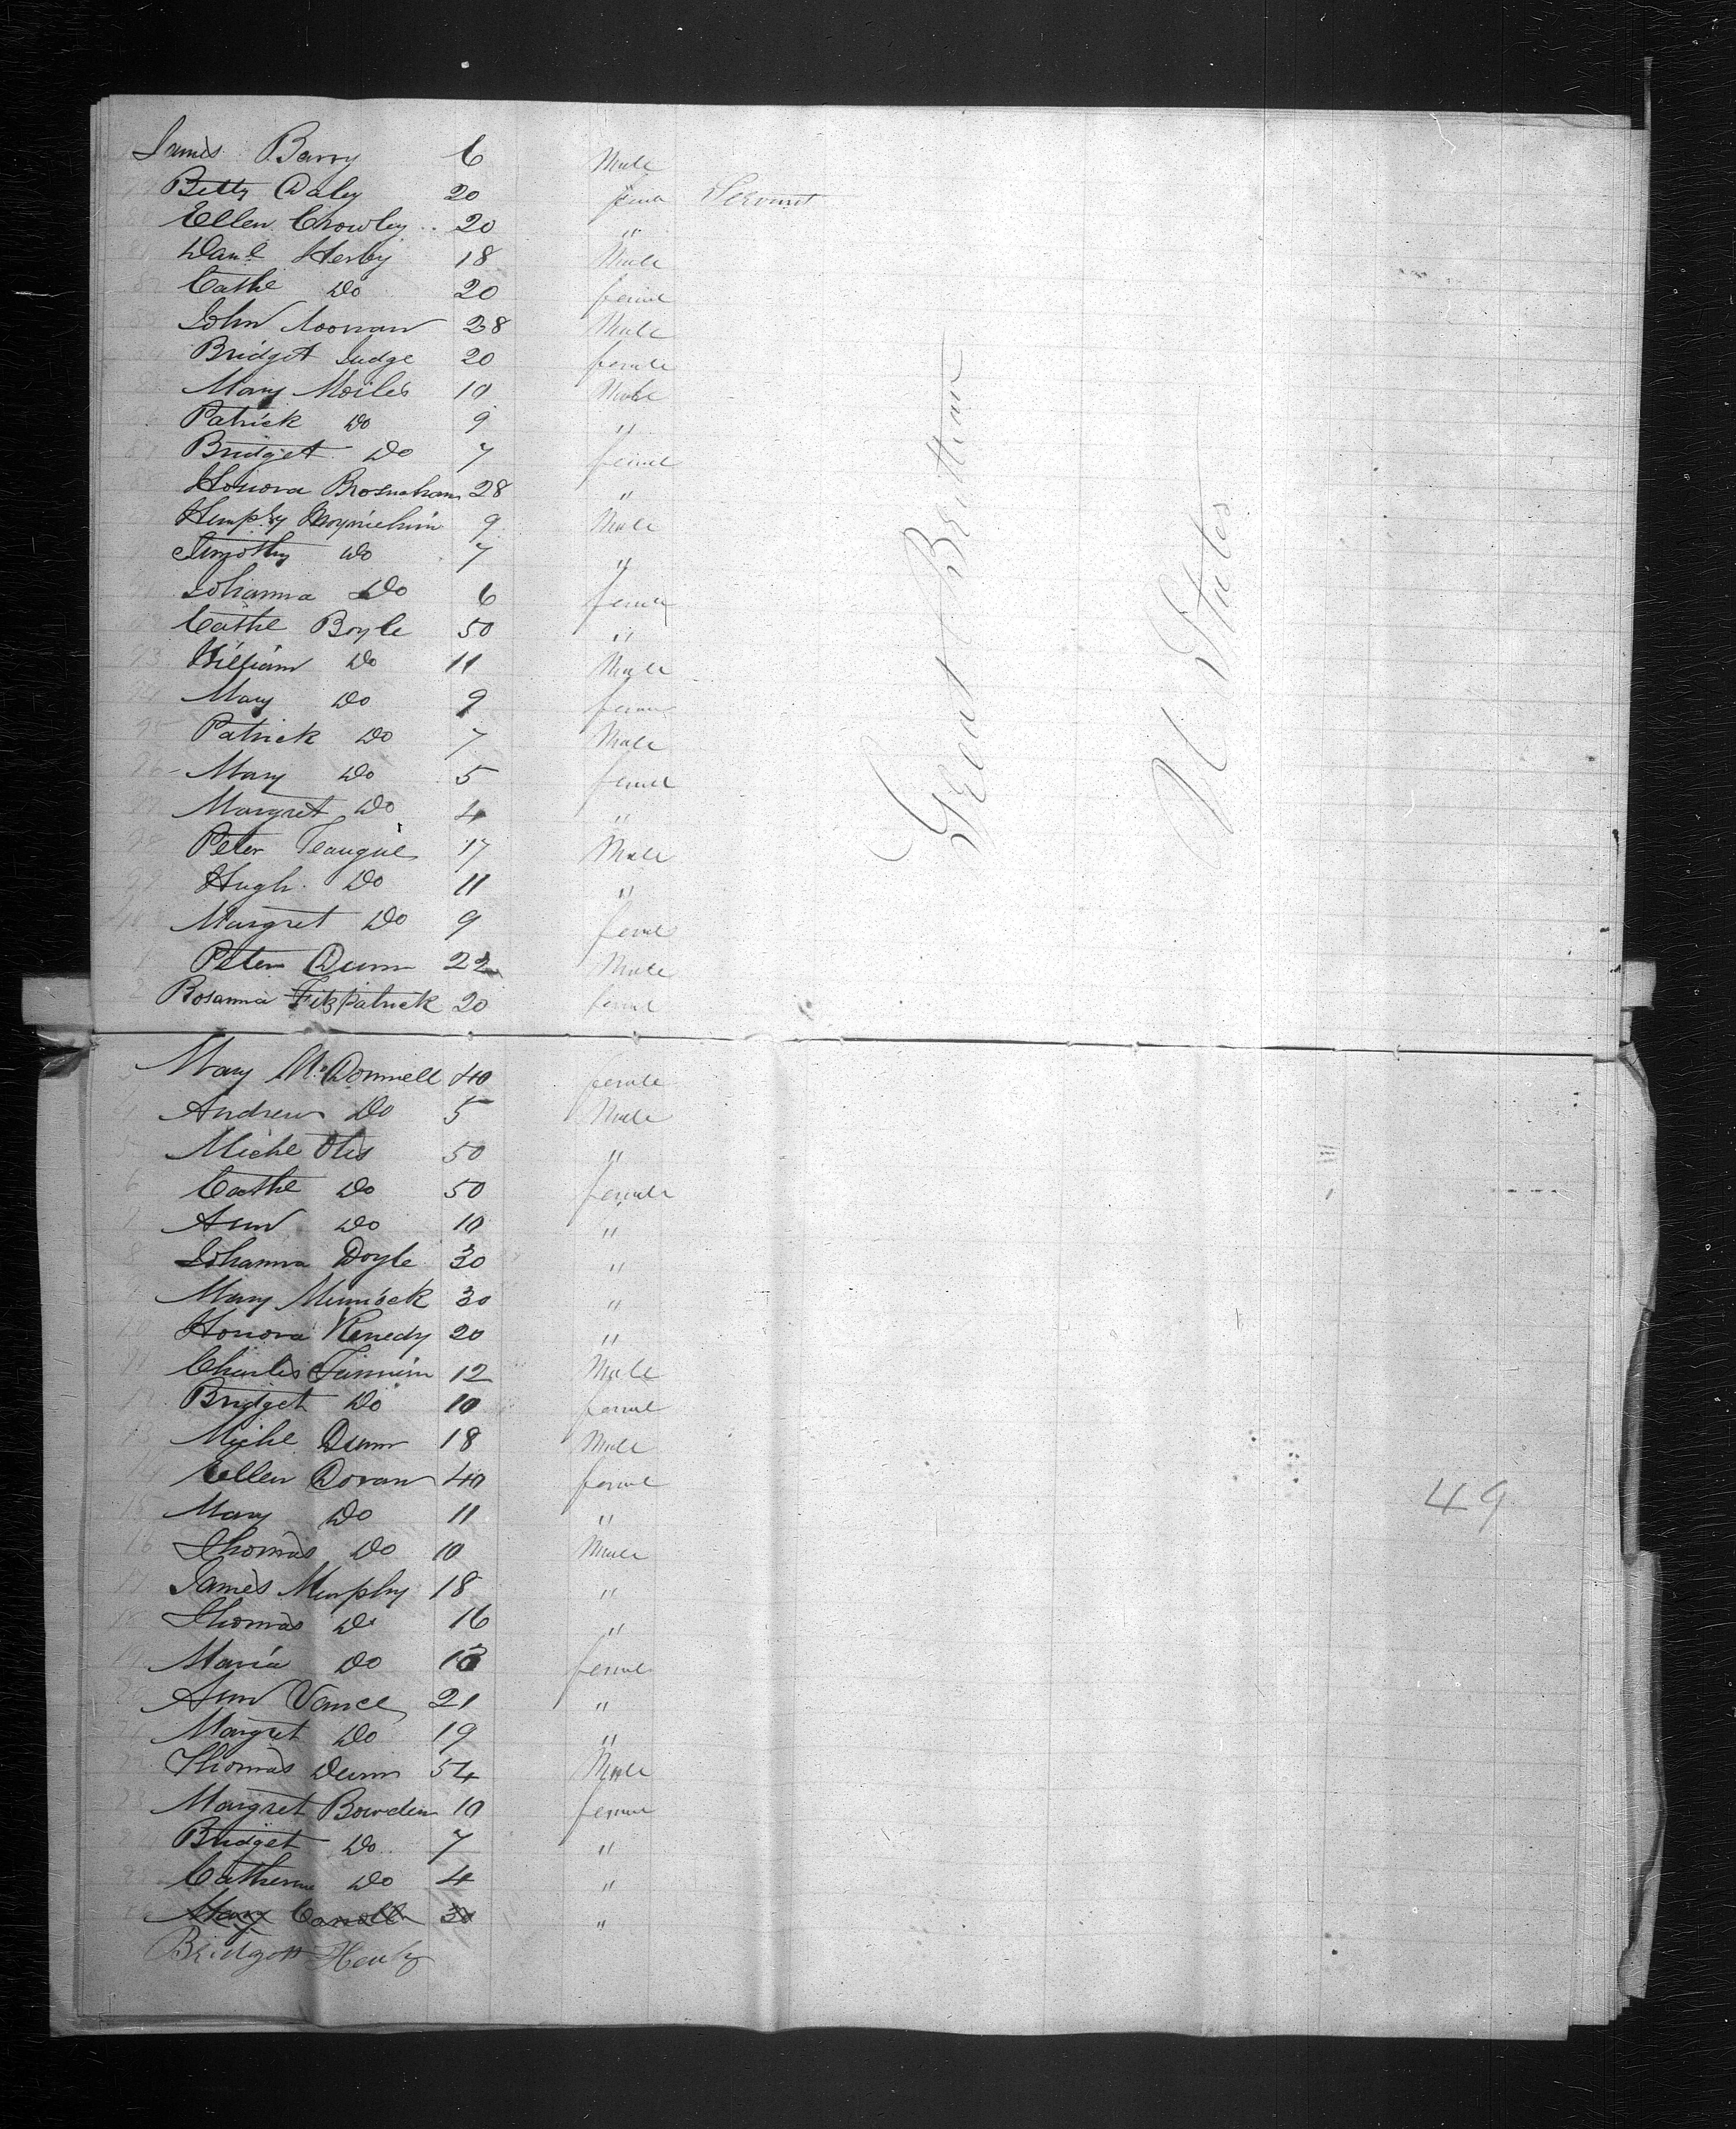 James Barry 6 Male
Betty Daley 20 fema Servant
Ellen Crowley 20 "
Danl Herby 18 Male
Cathe Do 20 femal
John Noonan 28 Male
Bridget Judge 20 female
Mary Moiles 10 Male
Patrick Do 9 "
87 Bridget Do 7 femal
Honora Brosnaham 28 "
Humphy Moynichin 9 Male
Timothy Do 7 "
Johanna Do 6 femal
Cathe Boyle 50 "
93 William Do 11 Male
94 Mary Do 9 femal
95 Patrick Do 7 Male
96 Mary Do 5 femal
97 Margret Do 4 "
98 Peter Teangue 17 Male
99 Hugh Do 11 "
Margret Do 9 femal
1 Peter Dunn 22 Male
2 Rosanna Fitzpatrick 20 femal
Great Brittian
U States
Mary McDonnell 40 female
4 Andrew Do 5 Male
5 Miche Otes 50 "
6 Cathe Do 50 female
Ann Do 10 "
8 Johanna Doyle 30 "
Mary Minnock 30 "
10 Honora Kenedy 20 "
11 Charles Finnin 12 Male
12 Bridget Do 10 femal
13 Miche Dunn 18 Male
14 Ellen Doran 40 femal
15 Mary Do 11 "
16 Thomas Do 10 Male
17 James Murphy 18 "
18 Thomas Do 16 "
19 Maria Do 13 femal
20 Ann Vance 21 "
21 Margret Do 19 "
22 Thomas Dunn 54 Male
23 Margret Bowden 10 femal
24 Bridget Do 7 "
25 Catherine Do 4 "
26 Mary Carroll 30 "
Bridgett Healy
49